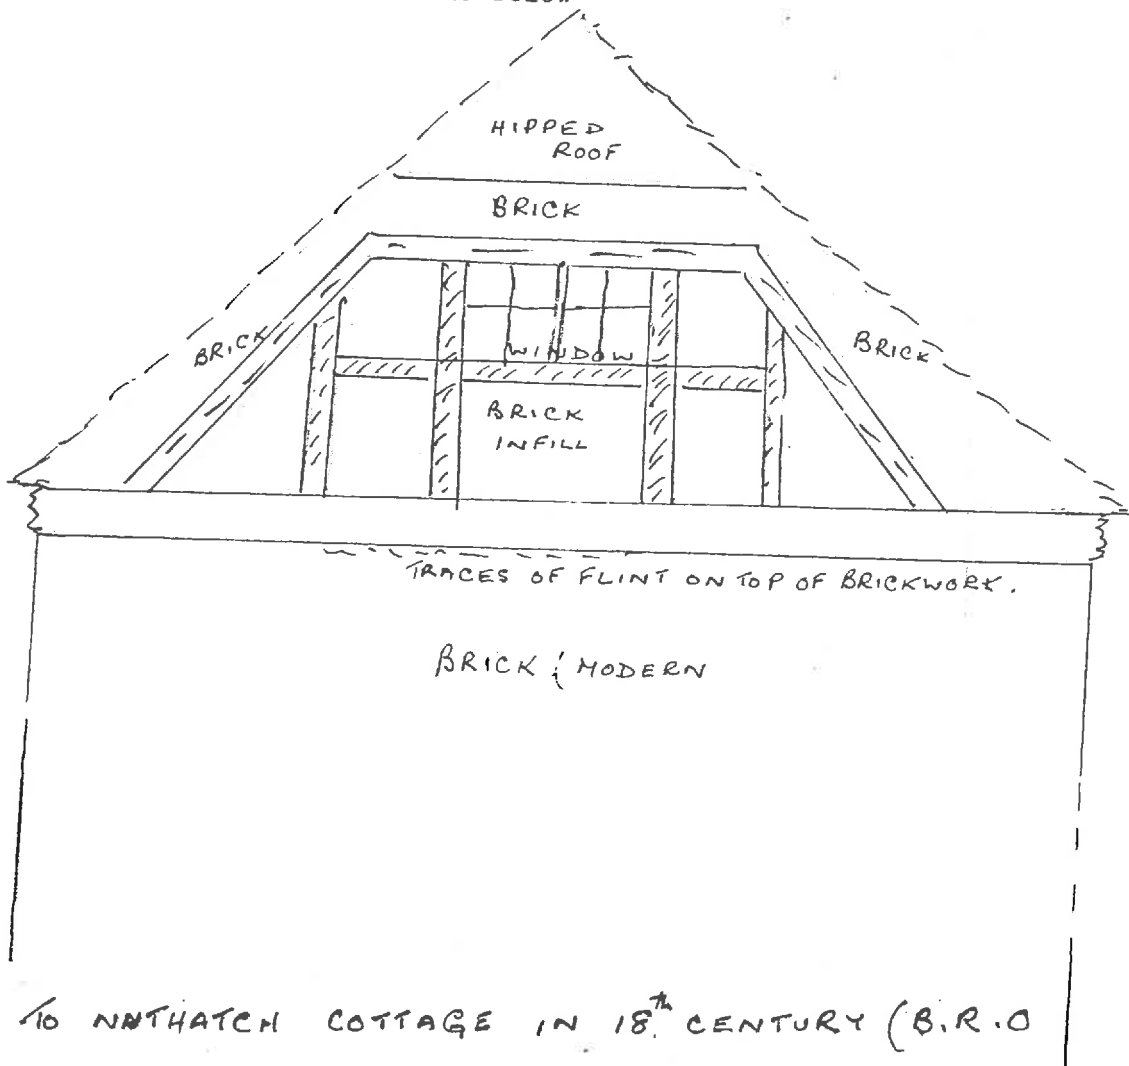 HIPPED
ROOF
BRICK
BRICK
BRICK
WINDOW
BRICK
INFILL
TRACES OF FLINT ON TOP OF BRICKWORK.
BRICK & MODERN
TO NUTHATCH COTTAGE IN 18th CENTURY (B.R.O